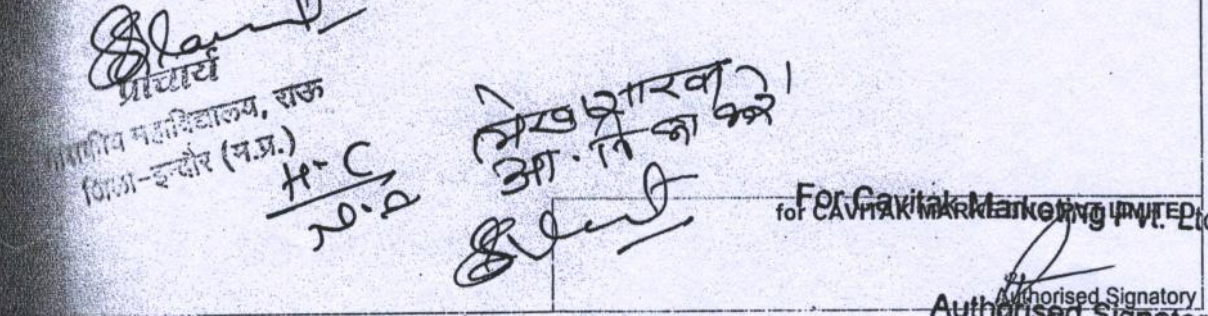 प्राचार्य
शासकीय महाविद्यालय, राऊ
जिला-इन्दौर (म.प्र.)
H-C
लेख शाखा
आ. करे।
For Cavitak Marketing Pvt. Ltd
for CAVITAK MARKETING PVT LIMITED
Authorised Signatory
Authorised Signatory